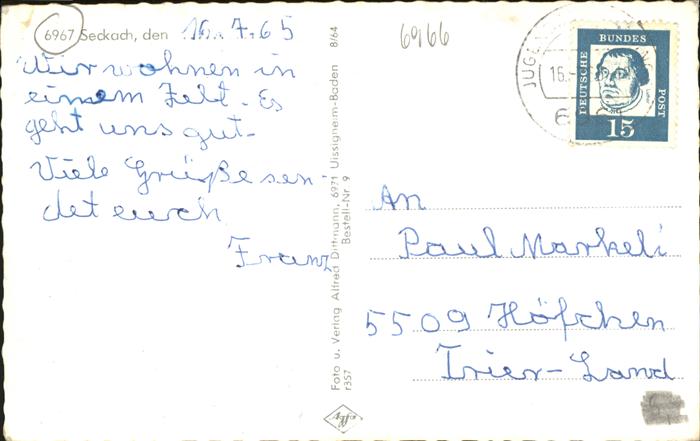 6967 Seckach, den 16. 7. 65
Wir wohnen in
einem Zelt. Es
geht uns gut.
Viele Grüße sen-
det euch
Franz
8/64
Foto u. Verlag Alfred Dittmann, 6971 Uissigheim-Baden
Bestell-Nr 9
r357
6966
JUGEN
16.
DEUTSCHE
BUNDES
POST
15
An
Paul Markeli
5509 Höfchen
Trier-Land